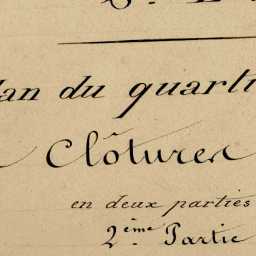 lan du quarti
Clôtures
en deux parties
2.ème Partie